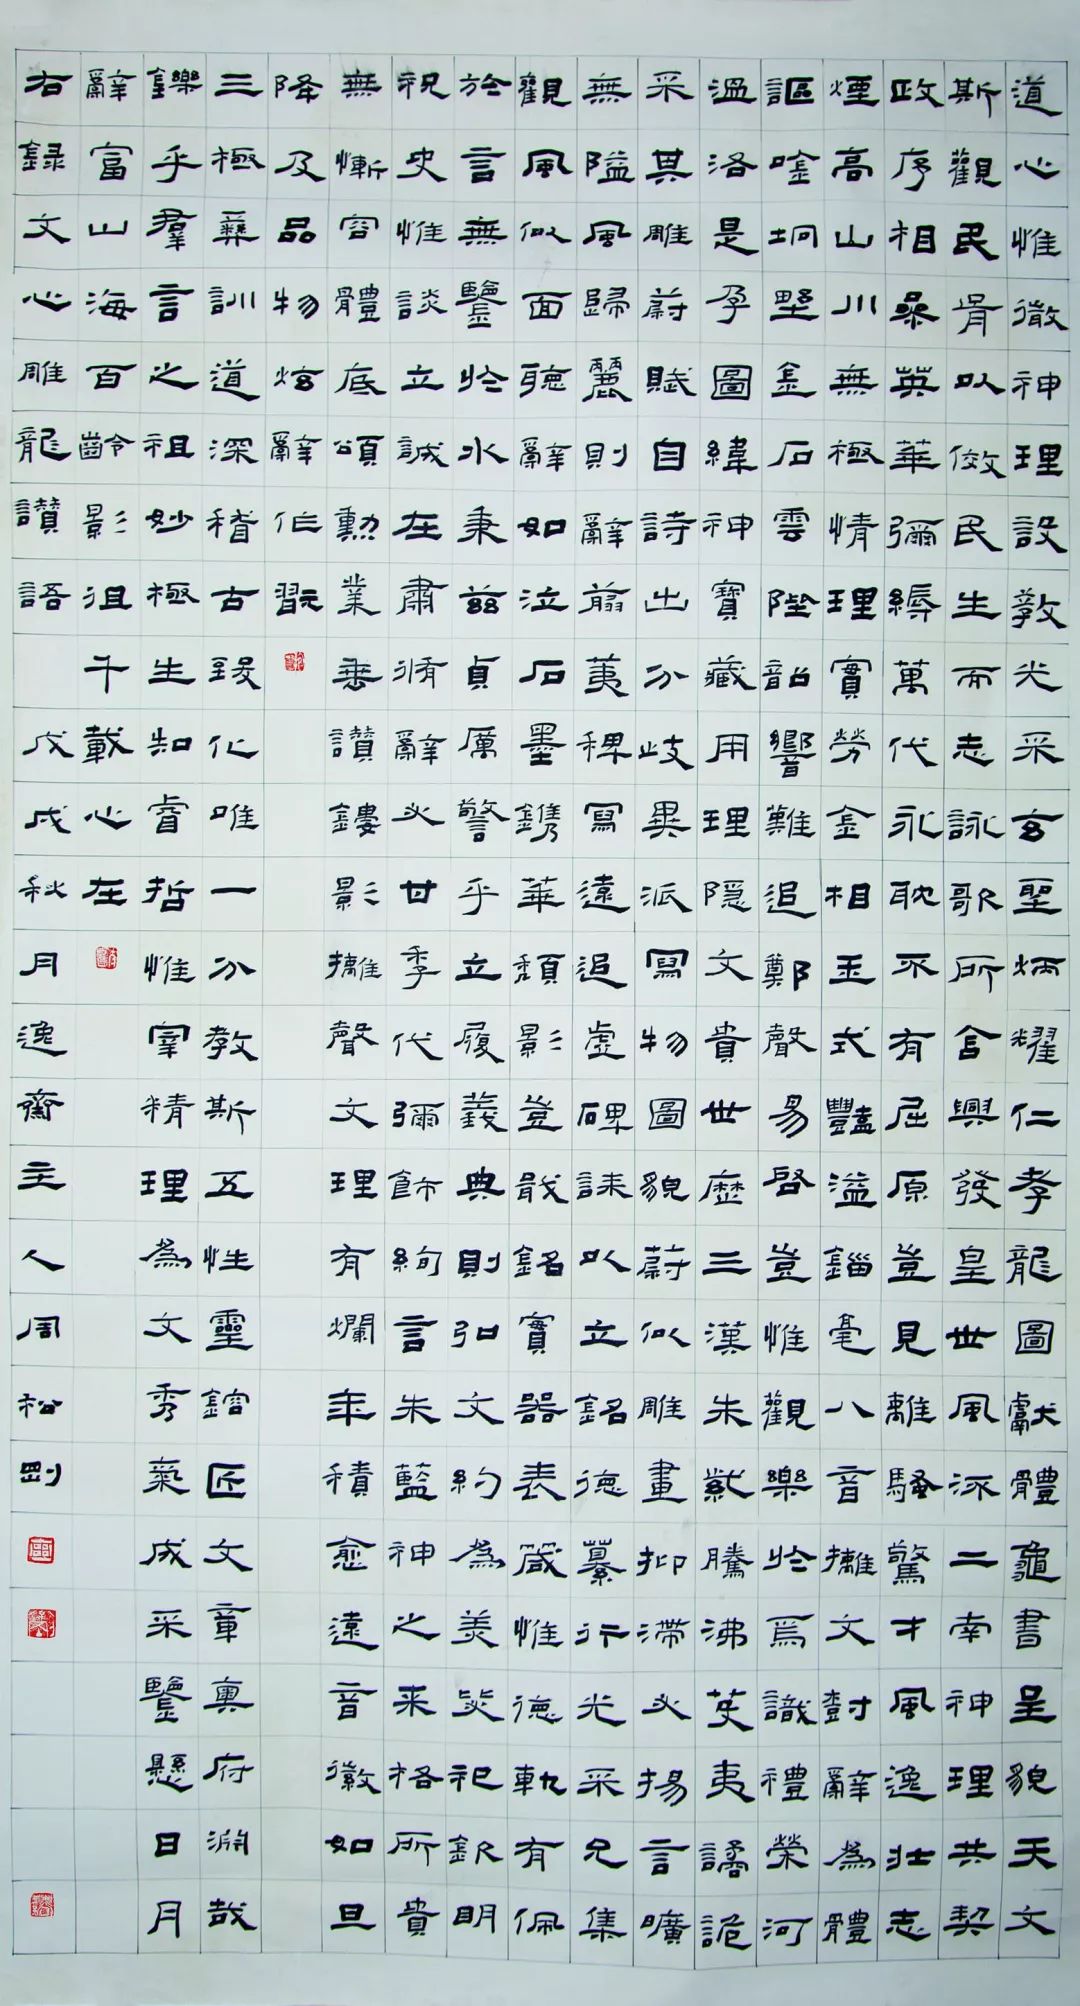 道心惟微神理設教光采玄聖炳耀仁孝龍圖獻體龜書呈貌天文
斯觀民胥以傚民生而志詠歌所含興發皇世風流二南神理共契
政序相參英華彌縟萬代永耽不有屈原豈見離騷驚才風逸壯志
煙高山川無極情理實勞金相玉式豔溢錙毫八音摛文樹辭為體
謳唫坰野金石雲陛韶響難追鄭聲易啓豈惟觀樂於焉識禮榮河
溫洛是孕圖緯神寶藏用理隱文貴世歷三漢朱紫騰沸芟夷譎詭
采其雕蔚賦自詩出分歧異派寫物圖貌蔚似雕畫抑滯必揚言曠
無隘風歸麗則辭翦荑稗寫遠追虛碑誄以立銘德纂行光采允集
觀風似面聽辭如泣石墨鐫華頹影豈戢銘實器表箴惟德軌有佩
於言無鑒於水秉茲貞厲警乎立履義典則弘文約為美毖祀欽明
祝史惟談立誠在肅脩辭必甘季代彌飾絢言朱藍神之來格所貴
無慚容體底頌勳業垂讚鏤影摛聲文理有爛年積愈遠音徽如旦
降及品物炫辭作翫
三極彝訓道深稽古致化唯一分教斯五性靈鎔匠文章奧府淵哉
鑠乎羣言之祖妙極生知睿哲惟宰精理為文秀氣成采鑒懸日月
辭富山海百齡影徂千載心在
右録文心雕龍讚語 戊戌秋月逸齋主人周松剛